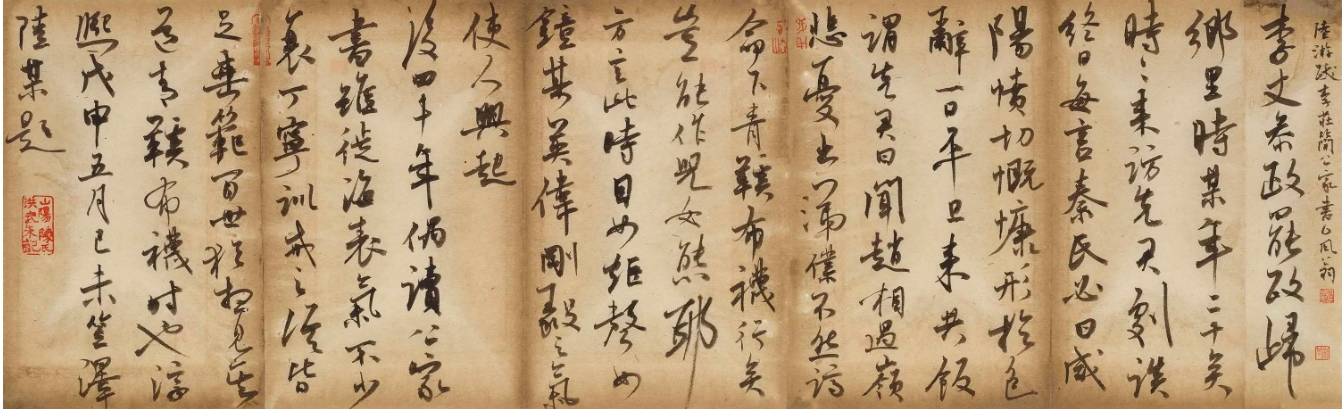 陸游跋李莊簡公家書
李丈參政罷政歸
鄉里時某年二十矣
時々來訪先君劇談
終日每言秦氏必曰咸
陽憤切慨慷形於色
辭一日平旦來共飯
謂先君曰聞趙相過嶺
悲憂出涕僕不然謫
命下青鞵布襪行矣
豈能作兒女態耶
方言此時目如炬聲如
鐘其英偉剛毅之氣
使人興起
後四十年偶讀公家
書雖徙海表氣不少
衰丁寧訓戒之語皆
足垂範百世猶想見其
道青鞵布襪時也淳
熙戊申五月己未笠澤
陸某題